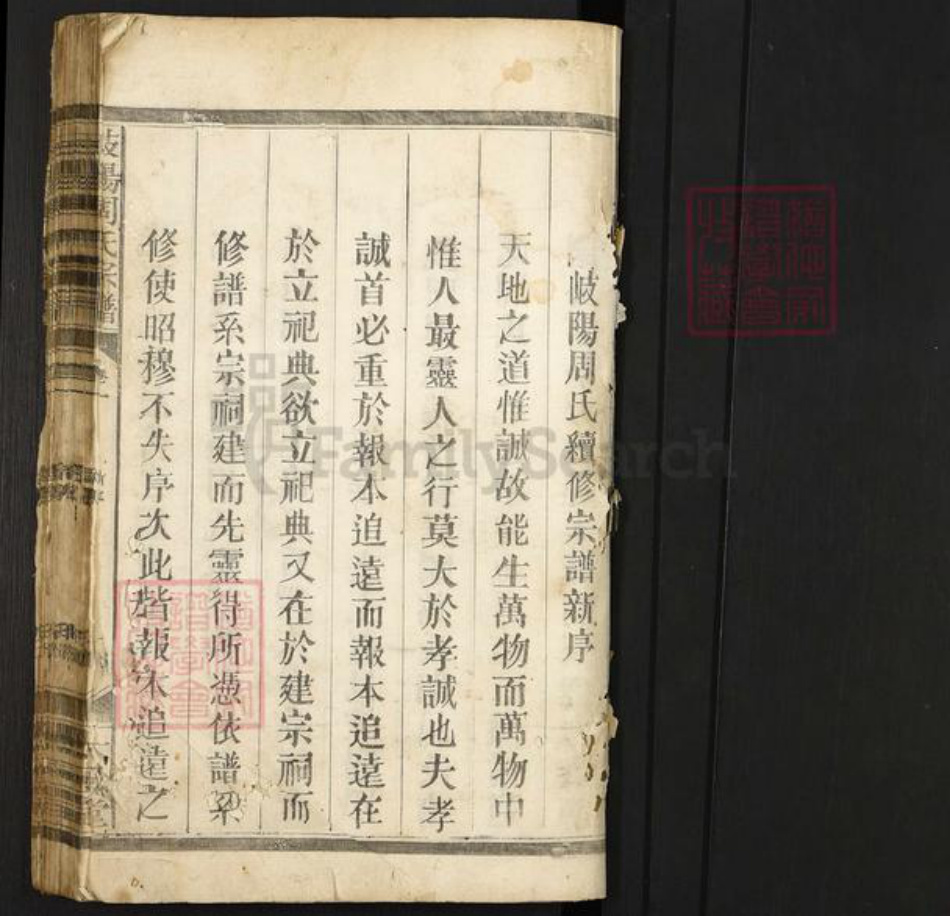 岐陽周氏續修宗譜新序
天地之道惟誠故能生萬物而萬物中
惟人最靈人之行莫大於孝誠也夫孝
誠首必重於報本追遠而報本追遠在
於立祀典欲立祀典又在於建宗祠而
修譜系宗祠建而先靈得所憑依譜系
修使昭穆不失序次此皆報本追遠之
岐陽周氏宗譜
FamilySearch